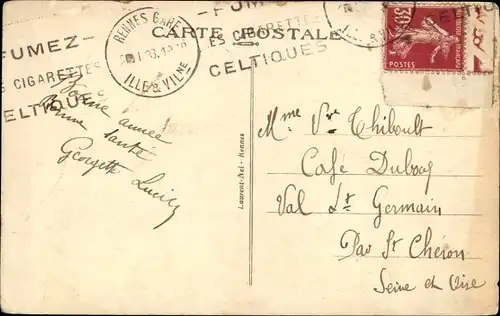 RENNES GARE
ILLE & VILNE
FUMEZ-
CIGARETTES
CELTIQUES
CARTE POSTALE
ES CIGARETTES
CELTIQUES
30
POSTES
Bonne année
bonne santé
Georgette Lucien
Laurent-Nel - Rennes
Mme Vve Thiboult
Café Duboog
Val St Germain
Par St Chéron
Seine et Oise